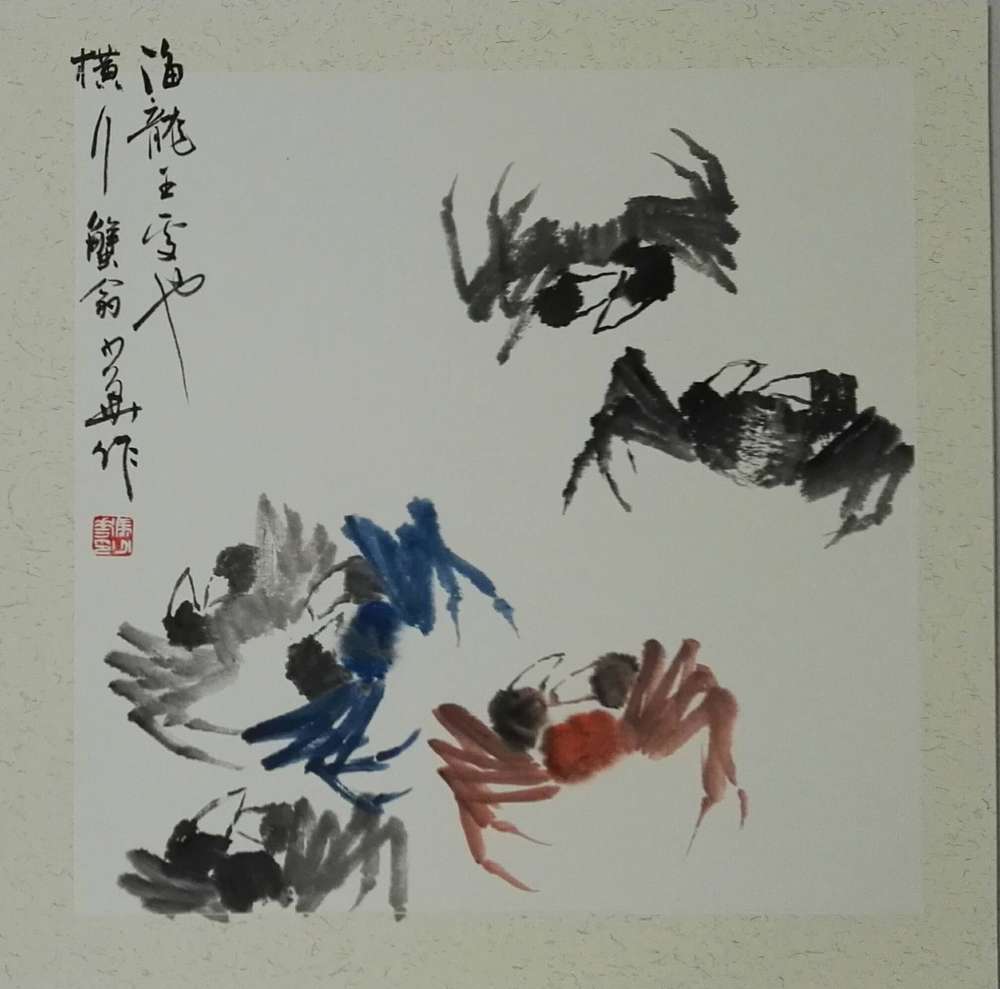 海龍王處也
橫行蟹翁華作